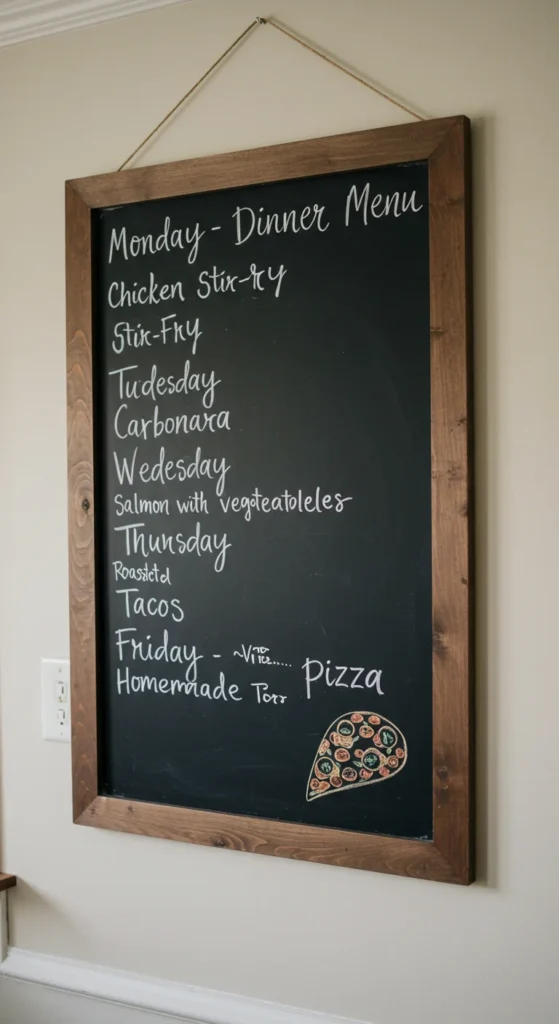 Monday - Dinner Menu
Chicken Stir-ry
Stir-Fry
Tudesday
Carbonara
Wedesday
Salmon with vegoteatoleles
Thunsday
Tacos
Friday -
Homemade
Pizza